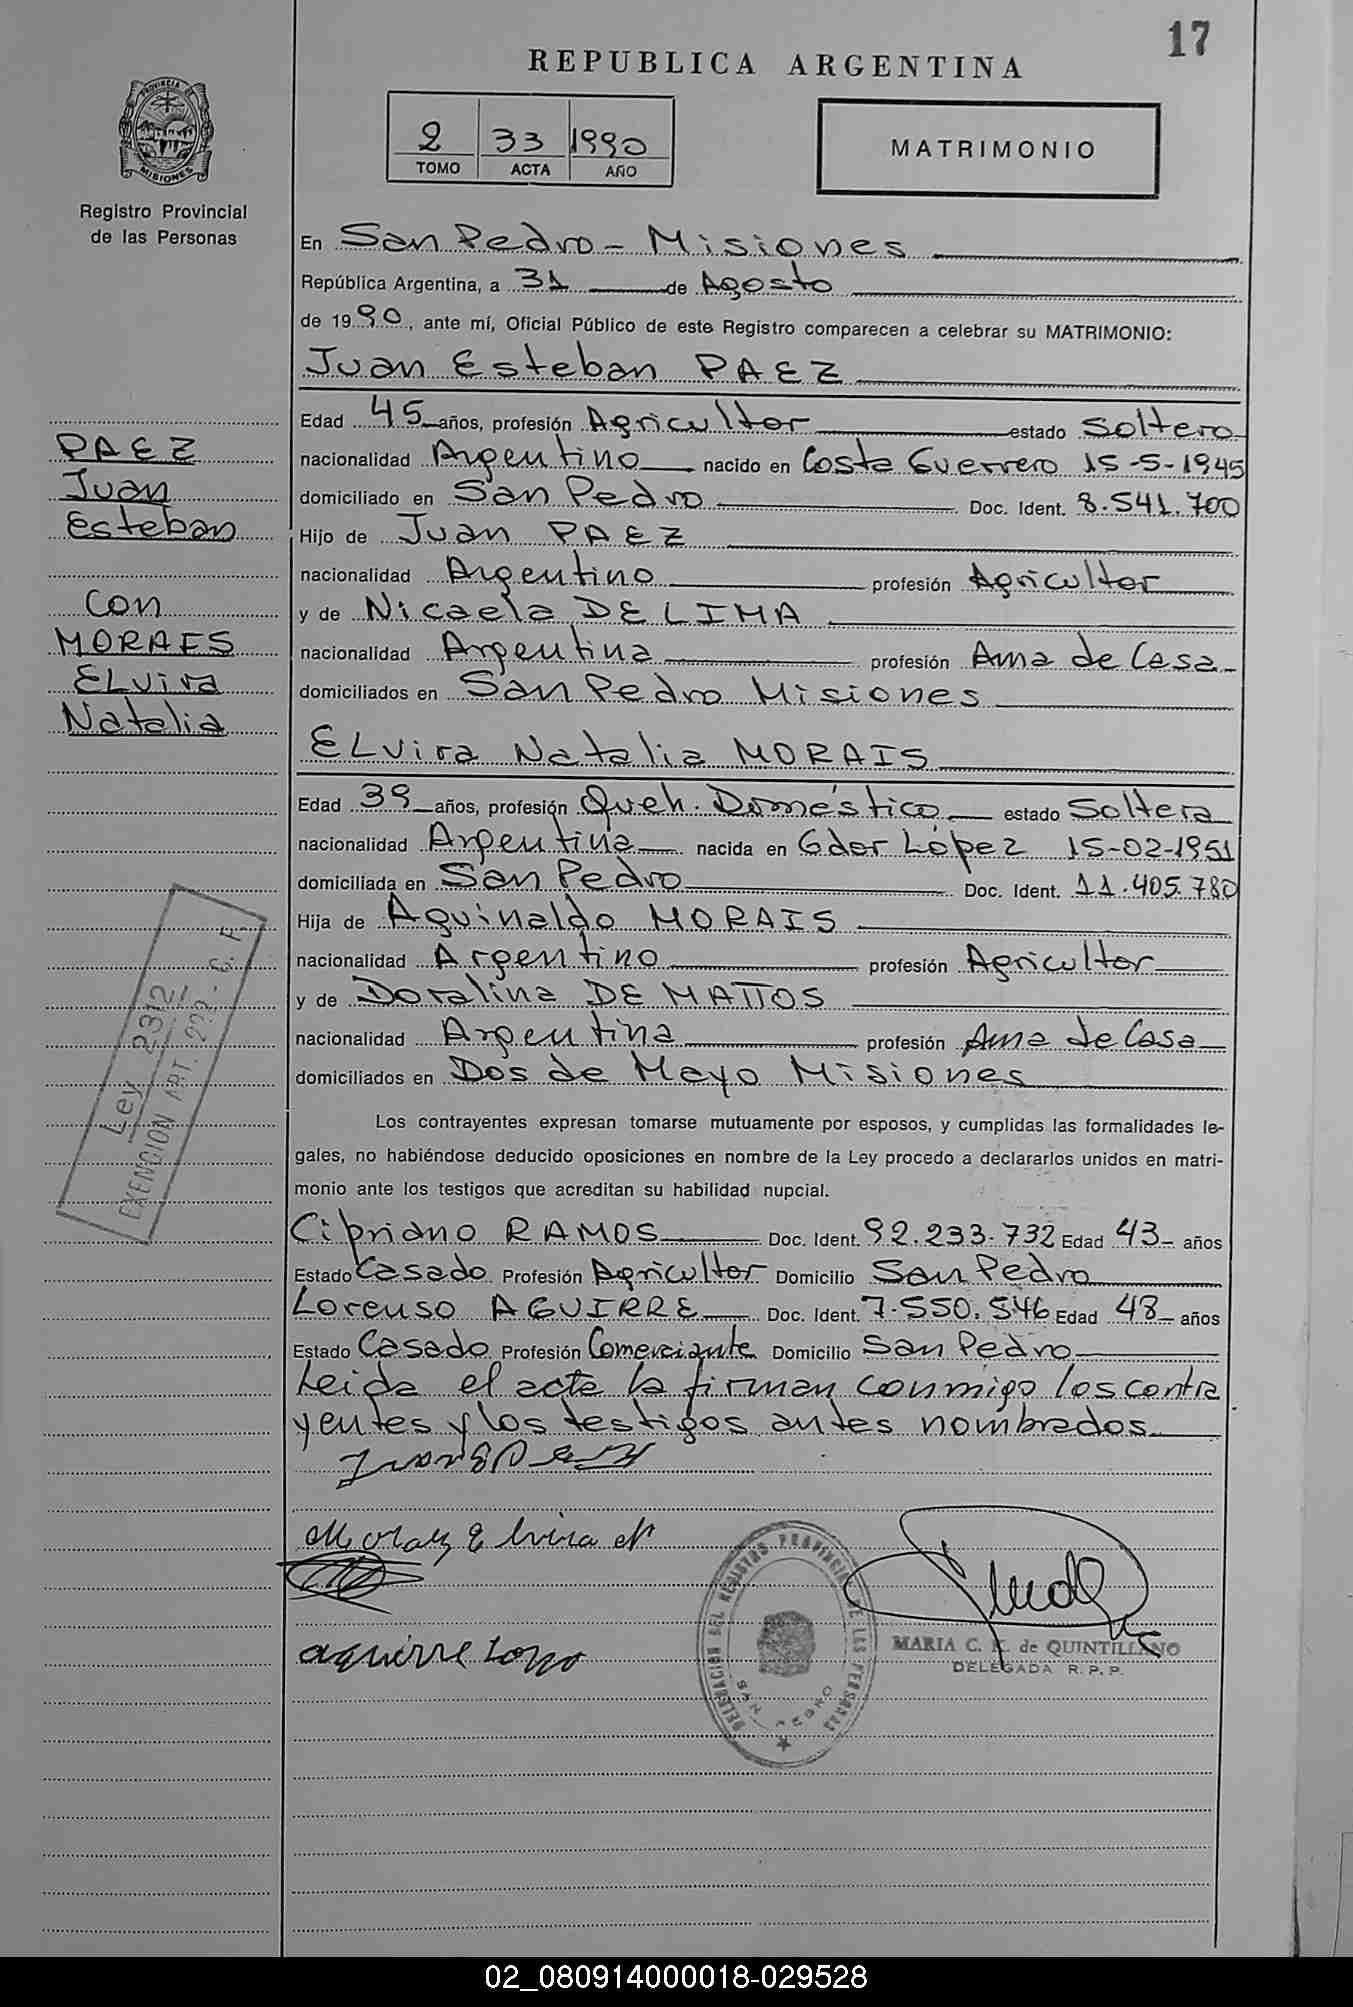 17
REPUBLICA ARGENTINA
PROVINCIA DE MISIONES
2 33 1990
TOMO ACTA AÑO
MATRIMONIO
Registro Provincial
de las Personas
En San Pedro - Misiones
República Argentina, a 31 de Agosto
de 1990, ante mí, Oficial Público de este Registro comparecen a celebrar su MATRIMONIO:
Juan Esteban PAEZ
Edad 45 años, profesión Agricultor estado Soltero
nacionalidad Argentino nacido en Costa Guerrero 15-5-1945
domiciliado en San Pedro Doc. Ident. 8.541.700
Hijo de Juan PAEZ
nacionalidad Argentino profesión Agricultor
y de Nicaela DE LIMA
nacionalidad Argentina profesión Ama de Casa
domiciliados en San Pedro Misiones
PAEZ
Juan
Esteban
Con
MORAES
ELvira
Natalia
ELvira Natalia MORAIS
Edad 39 años, profesión Queh. Doméstico estado Soltera
nacionalidad Argentina nacida en Gdor López 15-02-1951
domiciliada en San Pedro Doc. Ident. 11.405.780
Hija de Aguinaldo MORAIS
nacionalidad Argentino profesión Agricultor
y de Doralina DE MATTOS
nacionalidad Argentina profesión Ama de Casa
domiciliados en Dos de Mayo Misiones
Ley 2312
EXENCION ART. 222 - C. F.
Los contrayentes expresan tomarse mutuamente por esposos, y cumplidas las formalidades le-
gales, no habiéndose deducido oposiciones en nombre de la Ley procedo a declararlos unidos en matri-
monio ante los testigos que acreditan su habilidad nupcial.
Cipriano RAMOS Doc. Ident. 92.233.732 Edad 43 años
Estado Casado Profesión Agricultor Domicilio San Pedro
Lorenso AGUIRRE Doc. Ident. 7.550.546 Edad 48 años
Estado Casado Profesión Comerciante Domicilio San Pedro
Leida el acta la firman conmigo los contra
yentes y los testigos antes nombrados
Moraiz Elvira N
aguirre
DELEGACION DEL REGISTRO PROVINCIAL DE LAS PERSONAS
SAN PEDRO
MARIA C. de QUINTILLANO
DELEGADA R. P. P.
02_080914000018-029528